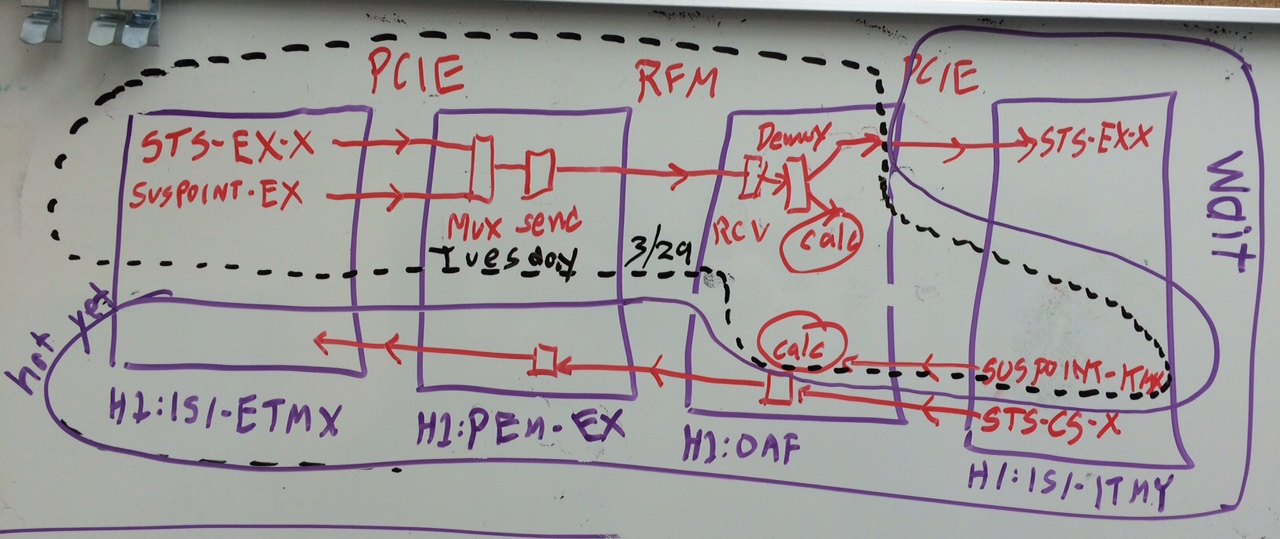 PCIE
RFM
PCIE
STS-EX-X
SUSPOINT-EX
Mux send
Demux
RCV
calc
STS-EX-X
Wait
Tuesday 3/29
not yet
calc
SUSPOINT-ITMX
STS-CS-X
H1:ISI-ETMX
H1:PEM-EX
H1:OAF
H1:ISI-ITMY